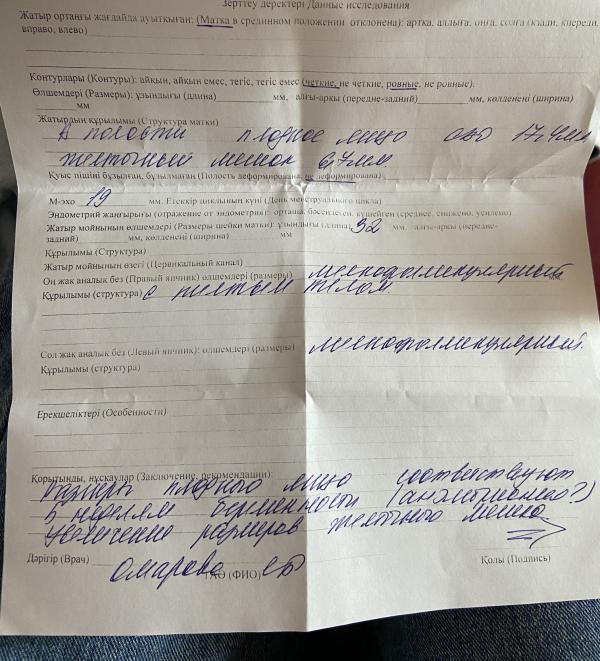 Зерттеу деректері Данные исследования
Жатыр ортаңғы жағдайда ауытқыған: (Матка в срединном положении отклонена): артқа, алдыға, оңға, солға (кзади, кпереди,
вправо, влево)
Контурлары (Контуры): айқын, айқын емес, тегіс, тегіс емес (четкие, не четкие, ровные, не ровные).
Өлшемдері (Размеры): ұзындығы (длина) мм, алғы-арқы (передне-задний) мм, көлденеңі (ширина)
мм
Жатырдың құрылымы (Структура матки)
В полости плодное яйцо 17,4мм
желточный мешок 6,7мм
Қуыс пішіні бұзылған, бұзылмаған (Полость деформирована, не деформирована)
М-эхо 19 мм. Етеккір циклының күні (День менструального цикла)
Эндометрий жаңғырығы (отражение от эндометрия): орташа, бәсеңдеген, күшейген (среднее, снижено, усилено)
Жатыр мойнының өлшемдері (Размеры шейки матки): ұзындығы (длина) 32 мм, алғы-арқы (передне-
задний) мм, көлденеңі (ширина) мм
Құрылымы (Структура)
Жатыр мойнының өзегі (Цервикальный канал)
Оң жақ аналық без (Правый яичник) өлшемдері (размеры) мелкофолликулярный
Құрылымы (структура) с желтым телом
Сол жақ аналық без (Левый яичник): өлшемдері (размеры) мелкофолликулярный.
Құрылымы (структура)
Ерекшеліктері (Особенности)
Қорытынды, нұсқаулар (Заключение, рекомендации):
Размеры плодного яйцо соответствуют
5 неделям беременности (анэмбриония?)
Увеличение размеров желточного мешка
Дәрігір (Врач) Омарова ТАӘ (ФИО) Қолы (Подпись)